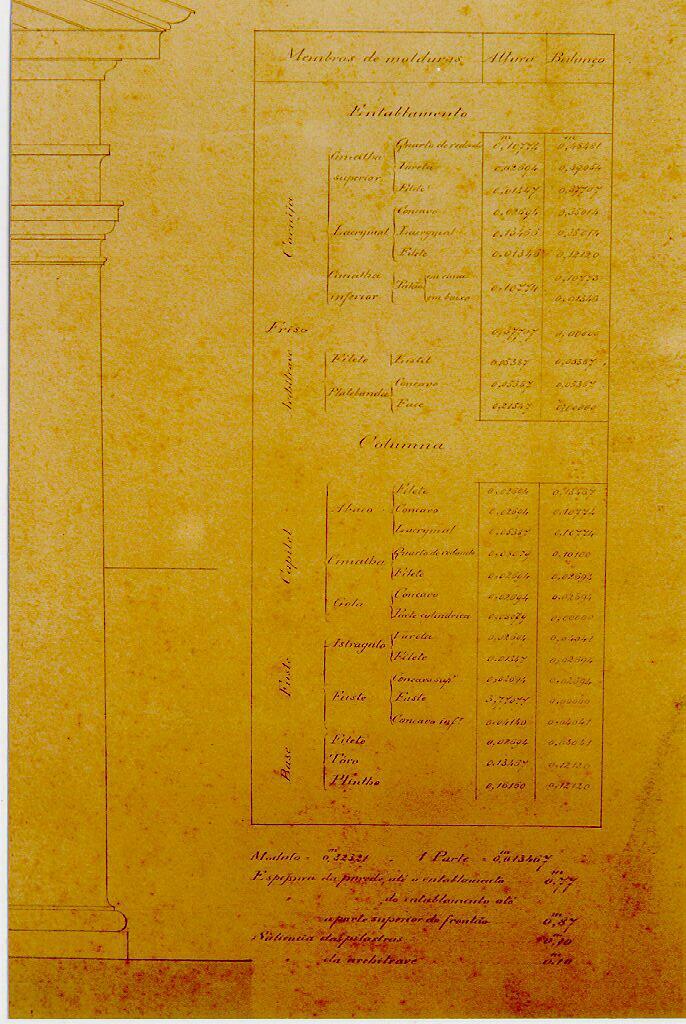 Membros de molduras Altura Balanço
Entablamento
Cornija
Cimalha superior
Quarto de redondo 0,10774
Tareta 0,02694
Filete 0,01347
Lacrymal
Concavo 0,02694 0,35014
Lacrymal 0,13466 0,35014
Filete 0,01346 0,12120
Cimalha inferior
Talão em cima em baixo 0,10774 0,10773 0,01346
Friso 0,37707 0,00000
Architrave
Filete Listel 0,05387 0,05387
Platebanda
Concavo 0,05387 0,05387
Face 0,21547 0,00000
Columna
Capitel
Abaco
Filete 0,02694 0,13467
Concavo 0,02694 0,10774
Lacrymal 0,05387 0,10774
Cimalha
Quarto de redondo 0,10100
Filete 0,02694 0,02694
Gola
Concavo 0,02694 0,02694
Parte cylindrica 0,00000
Fuste
Astragulo
Tareta 0,02694 0,04041
Filete 0,01347 0,02694
Fuste
Concavo supr. 0,02694
Fuste 3,77077 0,00000
Concavo infr. 0,04140 0,04041
Base
Filete 0,02694 0,04041
Toro 0,13467 0,12120
Plintho 0,16160 0,12120
Modulo = 0,m22321 - 1 Parte = 0,m013467
Espessura da parede até o entablamento 0,m77
" do entablamento até
a parte superior do frontão 0,m87
Saliencia das pilastras 0,m10
" da architrave 0,m10